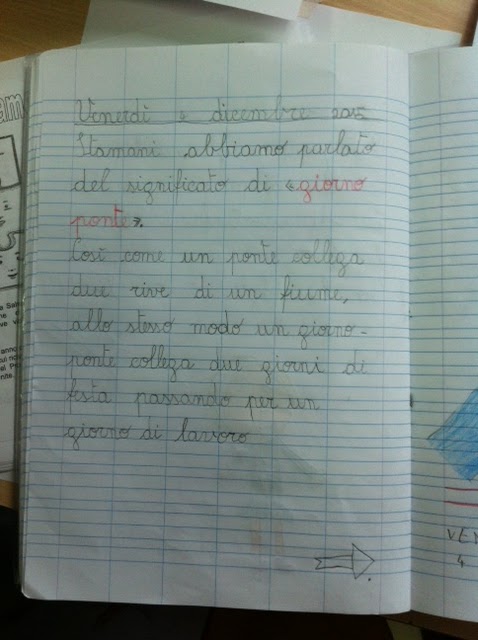 Venerdì 4 dicembre 2015
Stamani abbiamo parlato
del significato di «giorno
ponte».
Così come un ponte collega
due rive di un fiume,
allo stesso modo un giorno-
ponte collega due giorni di
festa passando per un
giorno di lavoro
am
VEN
4